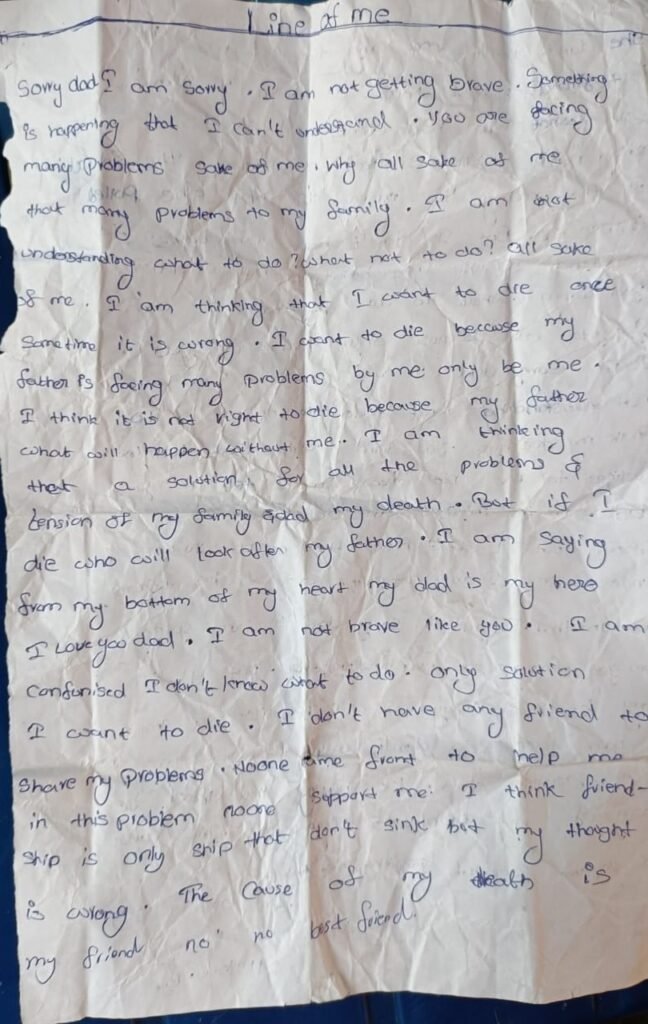 Line of me
Sorry dad I am sorry. I am not getting brave. Something
is happening that I can't understand. you are facing
many problems sake of me. why all sake of me
that many problems to my family. I am not
understanding what to do? what not to do? all sake
of me. I am thinking that I want to die once
Sometime it is wrong. I want to die because my
father is facing many problems by me only be me.
I think it is not right to die because my father
what will happen without me. I am thinking
that a solution for all the problems &
tension of my family &dad my death. But if I
die who will look after my father. I am saying
from my bottom of my heart my dad is my hero
I Love you dad. I am not brave like you. I am
confunised I don't know what to do. only solution
I want to die. I don't have any friend to
share my problems. Noone time front to help me
in this problem noone support me. I think friend-
ship is only ship that don't sink but my thought
is wrong. The cause of my death is
my friend no no best friend.